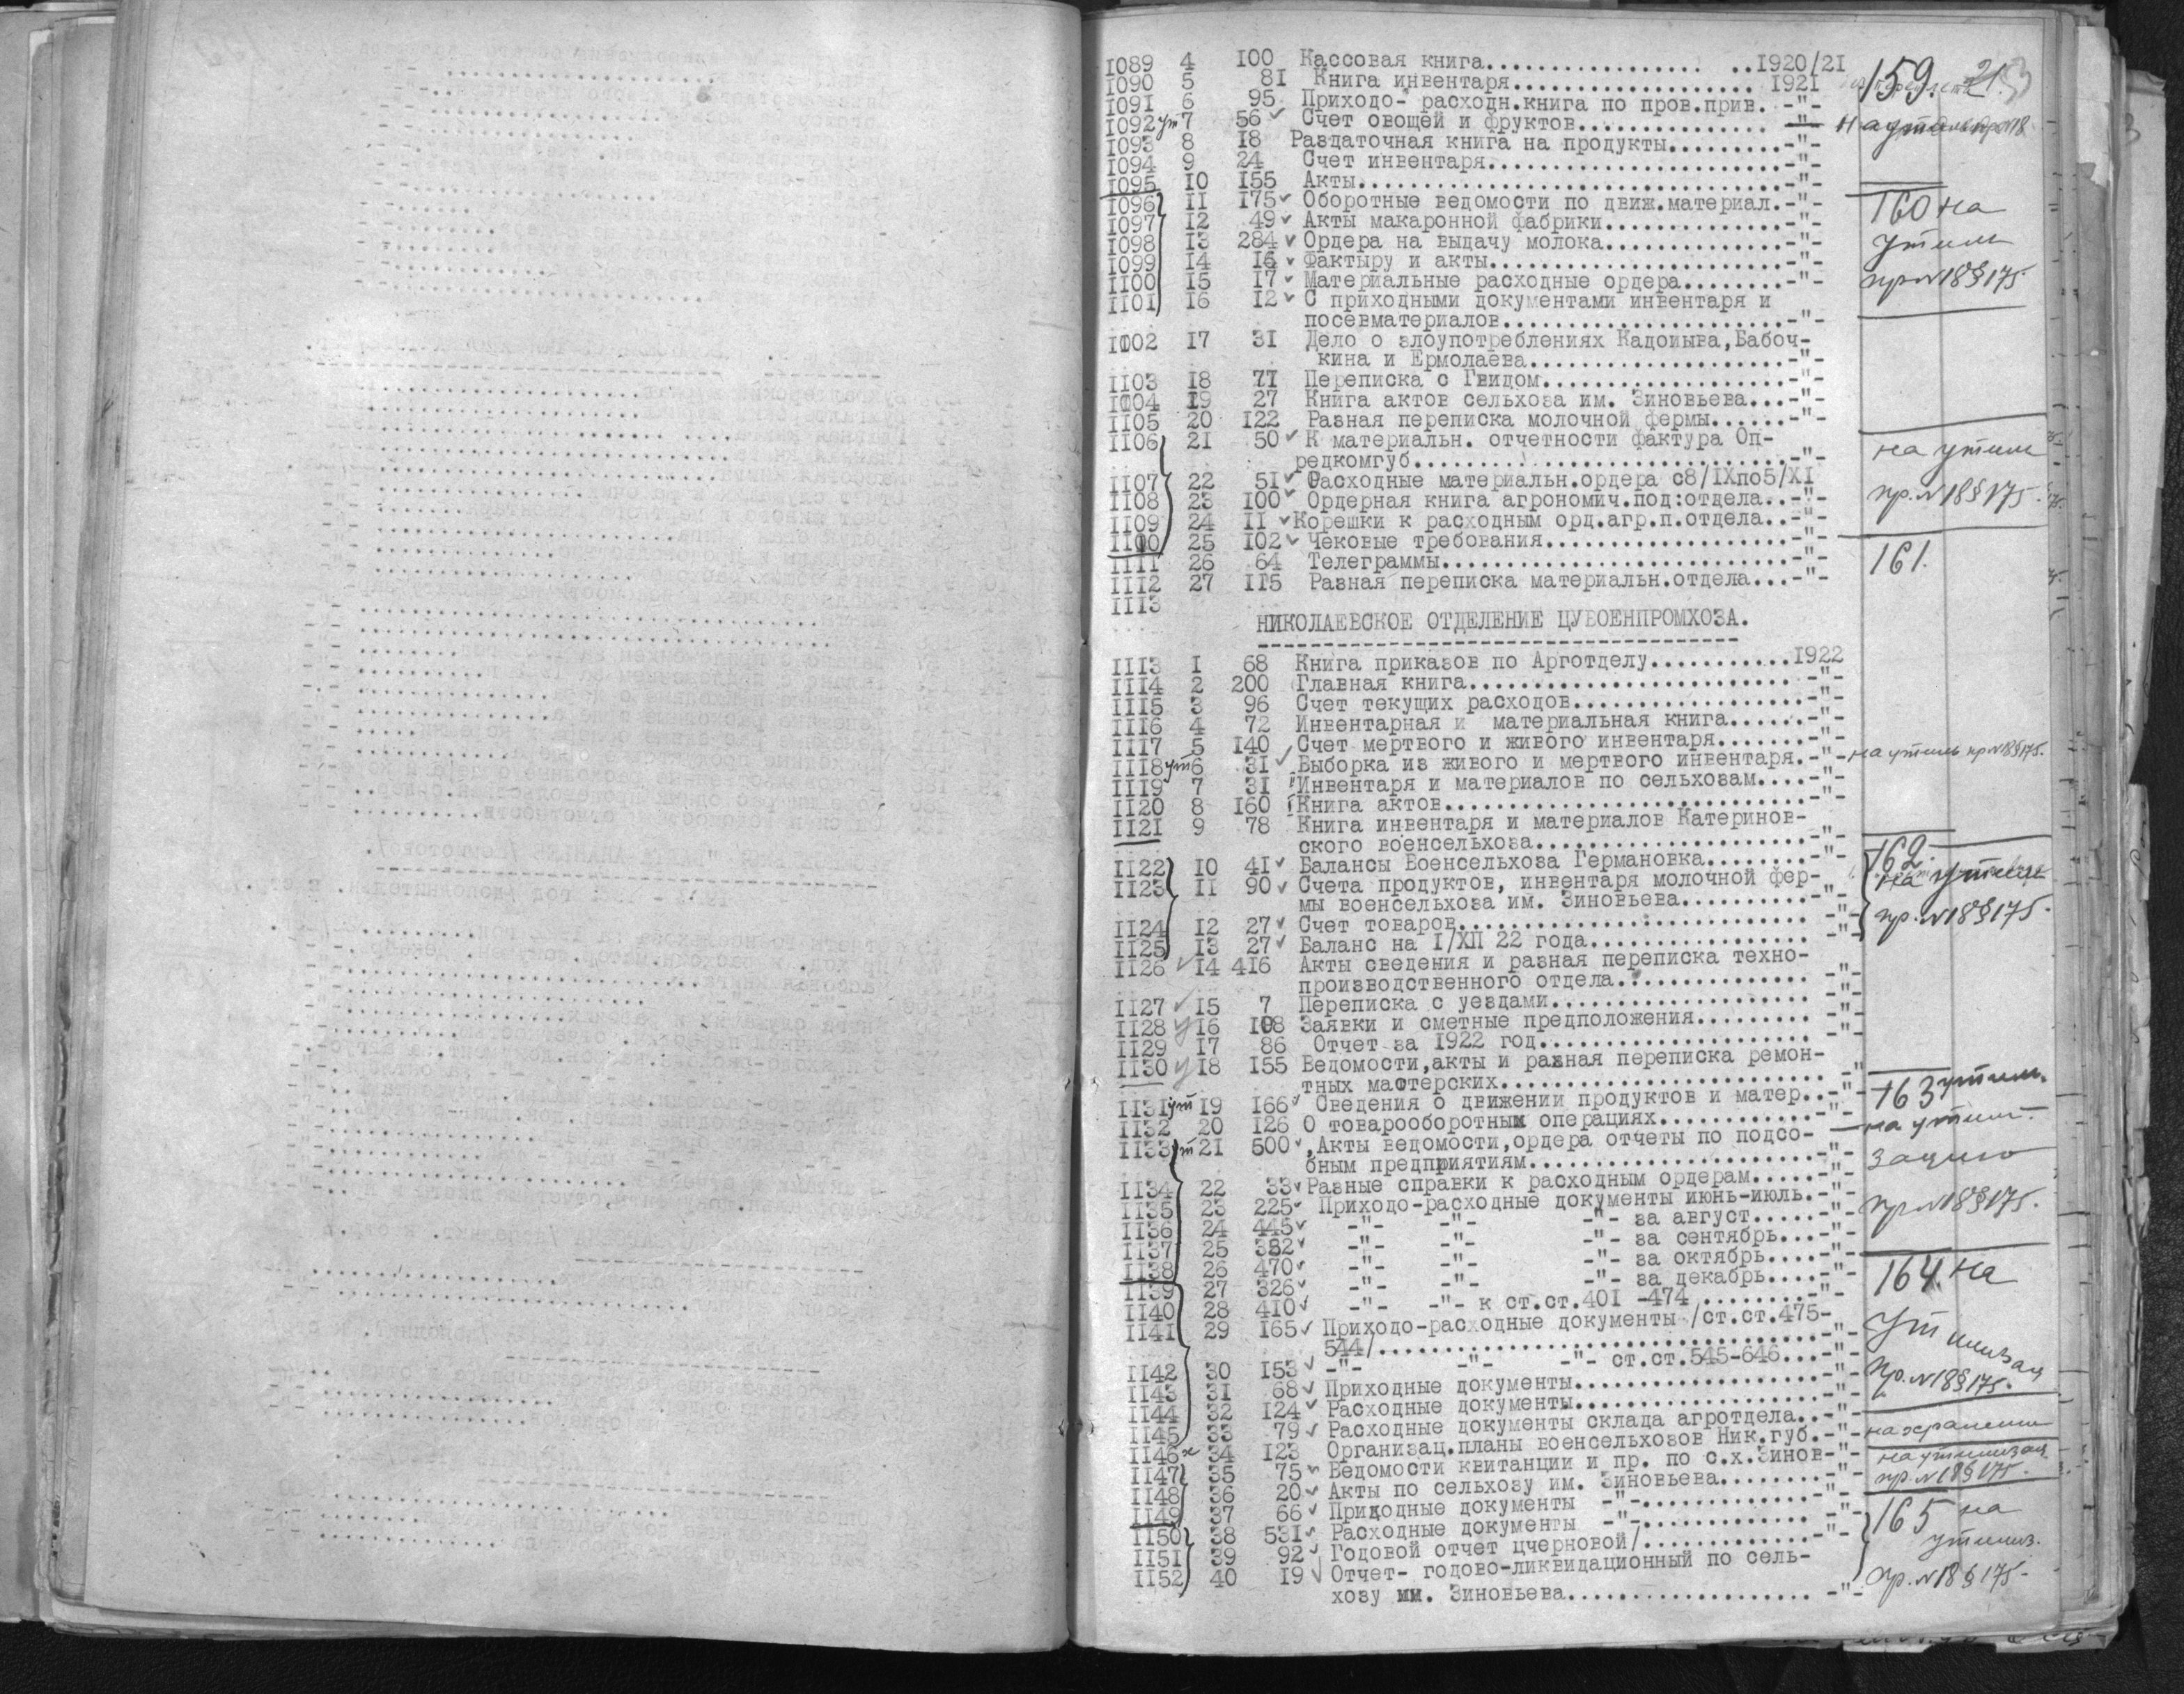 1089 4 100 Кассовая книга.................... ..1920/21
1090 5 81 Книга инвентаря.................... 1921
159. 21.
1091 6 95 Приходо- расходн.книга по пров.прив. -"-
1092 ут 7 56 ✓ Счет овощей и фруктов............... -"- На утиль пр№18
1093 8 18 Раздаточная книга на продукты.........-"-
1094 9 24 Счет инвентаря.......................-"-
1095 10 155 Акты.................................-"-
1096 11 175 ✓ Оборотные ведомости по движ.материал.-"- 160 на
1097 12 49 ✓ Акты макаронной фабрики..............-"-
1098 13 284 ✓ Ордера на выдачу молока..............-"- утиль
1099 14 16 ✓ Фактыру и акты.......................-"-
1100 15 17 ✓ Материальные расходные ордера........-"- пр№18§175.
1101 16 12 ✓ С приходными документами инвентаря и
посевматериалов......................-"-
1102 17 31 Дело о злоупотреблениях Кадоиыва,Бабоч-
кина и Ермолаева....................-"-
1103 18 77 Переписка с Гвидом...................-"-
1104 19 27 Книга актов сельхоза им. Зиновьева...-"-
1105 20 122 Разная переписка молочной фермы......-"-
1106 21 50 ✓ К материальн. отчетности фактура Оп- на утиль
редкомгуб.............................-"-
1107 22 51 ✓ Расходные материальн.ордера с8/IXпо5/XI
1108 23 100 ✓ Ордерная книга агрономич.под:отдела..-"- пр.№18§175.
1109 24 11 ✓ Корешки к расходным орд.агр.п.отдела..-"-
1100 25 102 ✓ Чековые требования...................-"-
1111 26 64 Телеграммы...........................-"- 161.
1112 27 115 Разная переписка материальн.отдела...-"-
1113
НИКОЛАЕВСКОЕ ОТДЕЛЕНИЕ ЦУВОЕНПРОМХОЗА.
1113 1 68 Книга приказов по Арготделу...........1922
1114 2 200 Главная книга......................... -"-
1115 3 96 Счет текущих расходов..................-"-
1116 4 72 Инвентарная и материальная книга......-"-
1117 5 140 Счет мертвого и живого инвентаря.......-"-
1118 ут 6 31 ✓ Выборка из живого и мертвого инвентаря.-"- на утиль пр№18§175.
1119 7 31 Инвентаря и материалов по сельхозам....-"-
1120 8 160 Книга актов............................-"-
1121 9 78 Книга инвентаря и материалов Катеринов-
ского военсельхоза.....................-"-
1122 10 41 ✓ Балансы Военсельхоза Германовка........-"- 162.
1123 11 90 ✓ Счета продуктов, инвентаря молочной фер- на утиль
мы военсельхоза им. Зиновьева..........-"-
1124 12 27 ✓ Счет товаров........................... -"- пр.№18§175.
1125 13 27 ✓ Баланс на I/XII 22 года................. -"-
1126 ✓ 14 416 Акты сведения и разная переписка техно-
производственного отдела............... -"-
1127 ✓ 15 7 Переписка с уездами.................... -"-
1128 16 108 Заявки и сметные предположения......... -"-
1129 17 86 Отчет за 1922 год...................... -"-
1130 18 155 Ведомости,акты и разная переписка ремон-
тных мастерских......................... -"-
1131 ут 19 166 ✓ Сведения о движении продуктов и матер..-"- 163 утиль.
1132 20 126 О товарооборотным операциях............-"- на утил.
1133 ут 21 500 ✓ ,Акты ведомости,ордера отчеты по подсо-
бным предприятиям......................-"-
1134 22 33 ✓ Разные справки к расходным ордерам.....-"-
1135 23 225 ✓ Приходо-расходные документы июнь-июль.-"- пр№18§175.
1136 24 445 ✓ -"- -"- -"- за август.....-"-
1137 25 382 ✓ -"- -"- -"- за сентябрь...-"-
1138 26 470 ✓ -"- -"- -"- за октябрь....-"-
1139 27 326 ✓ -"- -"- -"- за декабрь....-"- 164. на
1140 28 410 ✓ -"- -"- к ст.ст.401 -474 .........-"-
1141 29 165 ✓ Приходо-расходные документы /ст.ст.475-
544/...................................-"- утилизац
1142 30 153 ✓ -"- -"- -"- ст.ст.545-646...-"-
1143 31 68 ✓ Приходные документы....................-"- Пр.№18§175.
1144 32 124 ✓ Расходные документы....................-"-
1145 33 79 ✓ Расходные документы склада агротдела..-"-
1146 х 34 123 Организац.планы военсельхозов Ник.губ.-"- на хранении
1147 35 75 ✓ Ведомости квитанции и пр. по с.х.Зинов-"- на утилизац пр.№18§175.
1148 36 20 ✓ Акты по сельхозу им. Зиновьева........-"-
1149 37 66 ✓ Приходные документы -"-.............-"-
1150 38 531 ✓ Расходные документы -"-............. -"- 165 на
1151 39 92 ✓ Годовой отчет цчерновой/.............-"- утилиз.
1152 40 19 ✓ Отчет- годово-ликвидационный по сель-
хозу им. Зиновьева................... -"- Пр.№18§175-